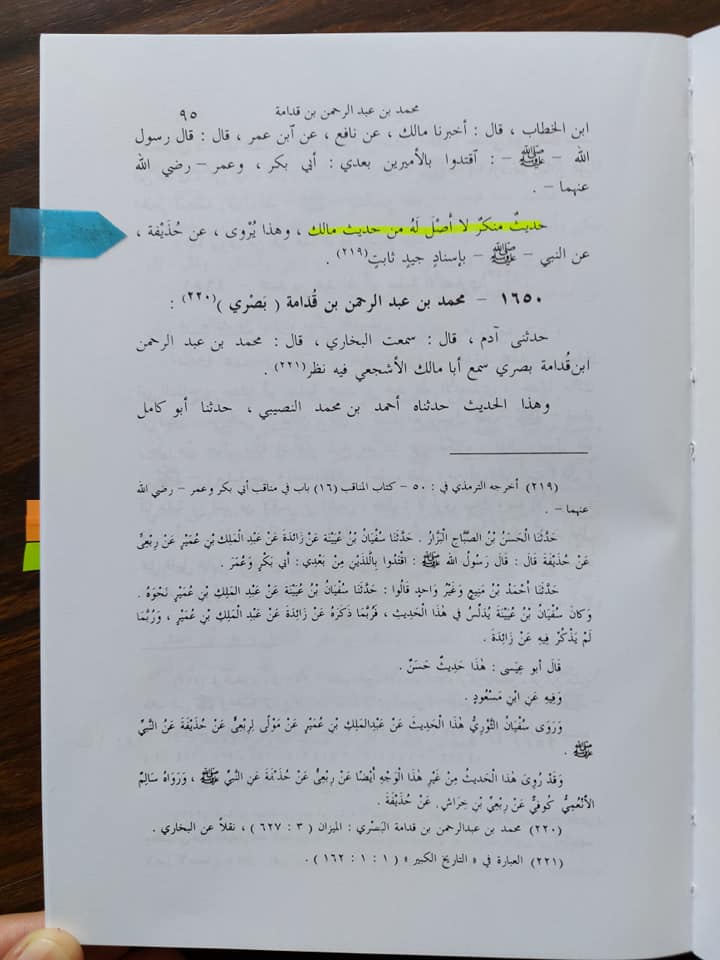 محمد بن عبد الرحمن بن قدامة ٩٥
ابن الخطاب ، قال : أخبرنا مالك ، عن نافع ، عن آبن عمر ، قال : قال رسول
الله – ﷺ – : آقتدوا بالأميرين بعدي : أبي بكر ، وعمر – رضي الله
عنهما – .
حديثٌ منكرٌ لا أصْلَ لَهُ من حديث مالك ، وهذا يُرْوى ، عن حُذَيْفة ،
عن النبي – ﷺ – بإسنادٍ جيدٍ ثابتٍ(٢١٩) .
١٦٥٠ – محمد بن عبد الرحمن بن قُدامة ( بَصْري )(٢٢٠) :
حدثنى آدم ، قال : سمعت البخاري ، قال : محمد بن عبد الرحمن
ابن قُدامة بصري سمع أبا مالك الأشجعي فيه نظر(٢٢١) .
وهذا الحديث حدثناه أحمد بن محمد النصيبي ، حدثنا أبو كامل
(٢١٩) أخرجه الترمذي في : ٥٠ – كتاب المناقب (١٦) باب في مناقب أبي بكر وعمر – رضي الله
عنهما – .
حَدَّثَنَا الْحَسَنُ بْنُ الصَّبَّاجِ الْبَزَّارُ . حَدَّثَنَا سُفْيَانُ بْنُ عُيَيْنَة عَنْ زَائِدَةَ عَنْ عَبْدِ الْمَلِكِ بْنِ عُمَيْرٍ عَنْ رِبْعِىٍّ
عَنْ حُذَيْفَةَ قَالَ : قَالَ رَسُولُ الله ﷺ : اقْتَدُوا بِاللَّذَيْنِ مِنْ بَعْدِي : أَبِي بَكْرٍ وَعُمَرَ .
حَدَّثَنَا أَحْمَدُ بْنُ مَنِيعٍ وَغَيْرُ وَاحِدٍ قَالُوا : حَدَّثَنَا سُفْيَانُ بْنُ عُيَيْنَة عَنْ عَبْدِ المَلِكِ بْنِ عُمَيْرٍ نَحْوَهُ .
وَكانَ سُفْيَانُ بْنُ عُيَيْنَةَ يُدَلِّسُ في هٰذَا الْحَدِيثِ ، فَرُبَّمَا ذَكَرَهُ عَنْ زَائِدَةَ عَنْ عَبْدِ الْمَلِكِ بْنِ عُمَيْرٍ ، وَرُبَّمَا
لَمْ يَذْكُرْ فِيهِ عَنْ زَائِدَةَ .
قَالَ أبو عِيسَى : هٰذَا حَدِيثٌ حَسَنٌ .
وَفِيهِ عَنِ ابْنِ مَسْعُودٍ .
وَرَوَى سُفْيَانُ الثَّوْرِيُّ هٰذَا الْحَدِيثَ عَنْ عَبْدِالمَلِكِ بْنِ عُمَيْرٍ عَنْ مَوْلًى لِرِبْعِيٍّ عَنْ حُذَيْفَةَ عَنُ النَّبِيِّ
ﷺ .
وَقَدْ رُوِىَ هٰذَا الْحَدِيثُ مِنْ غَيْرِ هٰذَا الْوَجْهِ أَيْضًا عَنْ رِبْعِىٍّ عَنْ حُذَيْفَةَ عَنِ النَّبِيِّ ﷺ ، وَرَوَاهُ سَالِمٌ
الأَنْعُمِيُّ كُوفِيٌّ عَنْ رِبْعِيِّ بْنِ حِرَاشٍ. عَنْ حُذَيْفَةَ .
(٢٢٠) محمد بن عبدالرحمن بن قدامة البَصْري : الميزان ( ٣ : ٦٢٧ ) ، نقلاً عن البخاري .
(٢٢١) العبارة في « التاريخ الكبير » ( ١ : ١ : ١٦٢ ) .